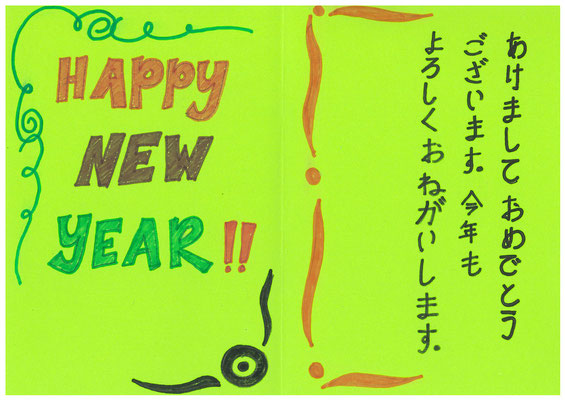 HAPPY
NEW
YEAR!!
あけましておめでとう
ございます。今年も
よろしくおねがいします。